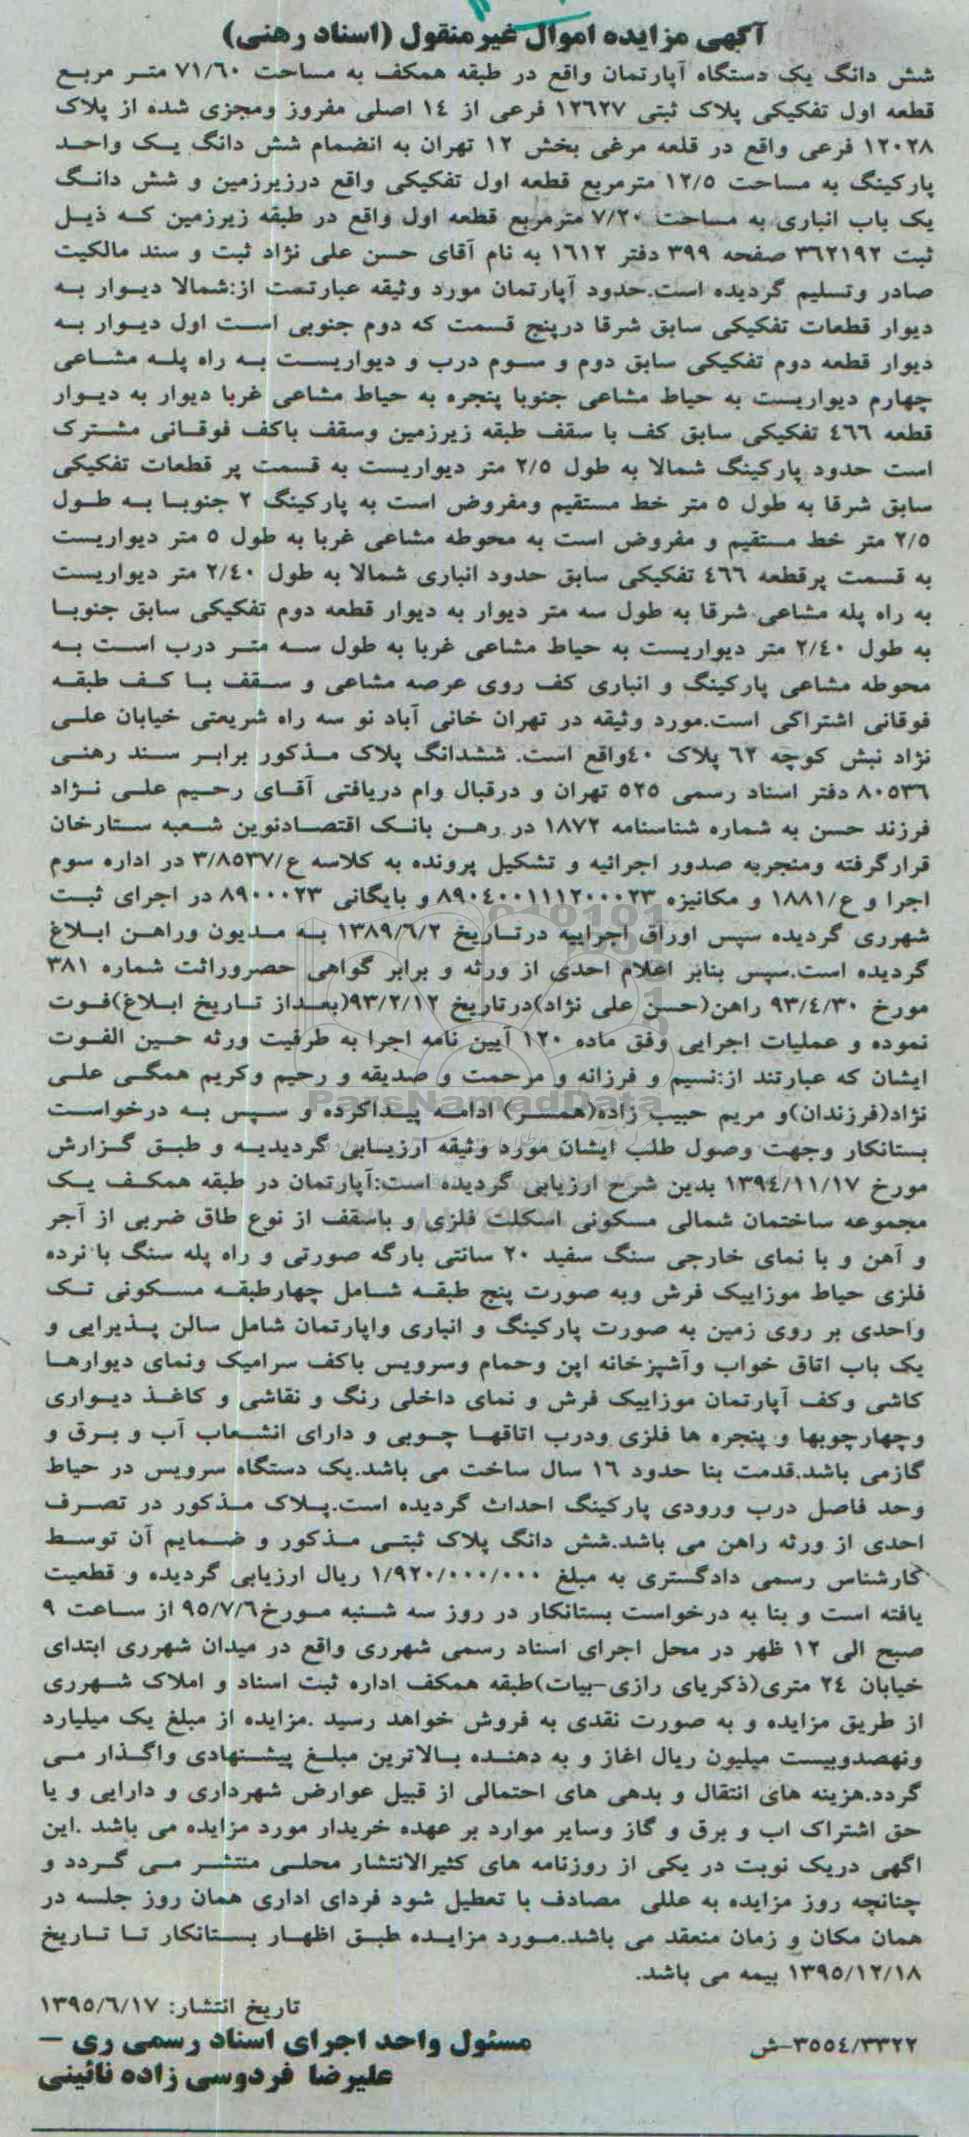 آگهی مزایده اموال غیرمنقول (اسناد رهنی)
شش دانگ یک دستگاه آپارتمان واقع در طبقه همکف به مساحت ۷۱/۶۰ متر مربع
قطعه اول تفکیکی پلاک ثبتی ۱۲۶۲۷ فرعی از ۱۴ اصلی مفروز ومجزی شده از پلاک
۱۲۰۲۸ فرعی واقع در قلعه مرغی بخش ۱۲ تهران به انضمام شش دانگ یک واحد
پارکینگ به مساحت ۱۲/۵ مترمربع قطعه اول تفکیکی واقع درزیرزمین و شش دانگ
یک باب انباری به مساحت ۷/۲۰ مترمربع قطعه اول واقع در طبقه زیرزمین که ذیل
ثبت ۳۶۲۱۹۲ صفحه ۳۹۹ دفتر ۱۶۱۲ به نام آقای حسن علی نژاد ثبت و سند مالکیت
صادر وتسلیم گردیده است.حدود آپارتمان مورد وثیقه عبارتست از:شمالا دیوار به
دیوار قطعات تفکیکی سابق شرقا درپنج قسمت که دوم جنوبی است اول دیوار به
دیوار قطعه دوم تفکیکی سابق دوم و سوم درب و دیواریست به راه پله مشاعی
چهارم دیواریست به حیاط مشاعی جنوبا پنجره به حیاط مشاعی غربا دیوار به دیوار
قطعه ۴۶۶ تفکیکی سابق کف با سقف طبقه زیرزمین وسقف باکف فوقانی مشترک
است حدود پارکینگ شمالا به طول ۲/۵ متر دیواریست به قسمت پر قطعات تفکیکی
سابق شرقا به طول ۵ متر خط مستقیم ومفروض است به پارکینگ ۲ جنوبا به طول
۲/۵ متر خط مستقیم و مفروض است به محوطه مشاعی غربا به طول ۵ متر دیواریست
به قسمت پرقطعه ۴۶۶ تفکیکی سابق حدود انباری شمالا به طول ۲/۴۰ متر دیواریست
به راه پله مشاعی شرقا به طول سه متر دیوار به دیوار قطعه دوم تفکیکی سابق جنوبا
به طول ۲/۴۰ متر دیواریست به حیاط مشاعی غربا به طول سه متر درب است به
محوطه مشاعی پارکینگ و انباری کف روی عرصه مشاعی و سقف با کف طبقه
فوقانی اشتراکی است.مورد وثیقه در تهران خانی آباد نو سه راه شریعتی خیابان علی
نژاد نبش کوچه ۶۲ پلاک ۴۰واقع است. ششدانگ پلاک مذکور برابر سند رهنی
۸۰۵۳۶ دفتر اسناد رسمی ۵۲۵ تهران و درقبال وام دریافتی آقای رحیم علی نژاد
فرزند حسن به شماره شناسنامه ۱۸۷۲ در رهن بانک اقتصادنوین شعبه ستارخان
قرارگرفته ومنجربه صدور اجرائیه و تشکیل پرونده به کلاسه ع/۳/۸۵۳۷ در اداره سوم
اجرا و ع/۱۸۸۱ و مکانیزه ۸۹۰۴۰۰۱۱۱۲۰۰۰۲۳ و بایگانی ۸۹۰۰۰۲۳ در اجرای ثبت
شهرری گردیده سپس اوراق اجراییه درتاریخ ۱۳۸۹/۶/۲ به مدیون وراهن ابلاغ
گردیده است.سپس بنابر اعلام احدی از ورثه و برابر گواهی حصروراثت شماره ۳۸۱
مورخ ۹۳/۴/۳۰ راهن(حسن علی نژاد)درتاریخ ۹۳/۲/۱۲(بعداز تاریخ ابلاغ)فوت
نموده و عملیات اجرایی وفق ماده ۱۲۰ آیین نامه اجرا به طرفیت ورثه حین الفوت
ایشان که عبارتند از:نسیم و فرزانه و مرحمت و صدیقه و رحیم وکریم همگی علی
نژاد(فرزندان)و مریم حبیب زاده(همسر) ادامه پیداکرده و سپس به درخواست
بستانکار وجهت وصول طلب ایشان مورد وثیقه ارزیابی گردیدیه و طبق گزارش
مورخ ۱۳۹۴/۱۱/۱۷ بدین شرح ارزیابی گردیده است:آپارتمان در طبقه همکف یک
مجموعه ساختمان شمالی مسکونی اسکلت فلزی و باسقف از نوع طاق ضربی از آجر
و آهن و با نمای خارجی سنگ سفید ۲۰ سانتی بارگه صورتی و راه پله سنگ با نرده
فلزی حیاط موزاییک فرش وبه صورت پنج طبقه شامل چهارطبقه مسکونی تک
واحدی بر روی زمین به صورت پارکینگ و انباری واپارتمان شامل سالن پذیرایی و
یک باب اتاق خواب وآشپزخانه اپن وحمام وسرویس باکف سرامیک ونمای دیوارها
کاشی وکف آپارتمان موزاییک فرش و نمای داخلی رنگ و نقاشی و کاغذ دیواری
وچهارچوبها و پنجره ها فلزی ودرب اتاقها چوبی و دارای انشعاب آب و برق و
گازمی باشد.قدمت بنا حدود ۱۶ سال ساخت می باشد.یک دستگاه سرویس در حیاط
وحد فاصل درب ورودی پارکینگ احداث گردیده است.پلاک مذکور در تصرف
احدی از ورثه راهن می باشد.شش دانگ پلاک ثبتی مذکور و ضمایم آن توسط
کارشناس رسمی دادگستری به مبلغ ۱/۹۲۰/۰۰۰/۰۰۰ ریال ارزیابی گردیده و قطعیت
یافته است و بنا به درخواست بستانکار در روز سه شنبه مورخ۹۵/۷/۶ از ساعت ۹
صبح الی ۱۲ ظهر در محل اجرای اسناد رسمی شهرری واقع در میدان شهرری ابتدای
خیابان ۲۴ متری(ذکریای رازی-بیات)طبقه همکف اداره ثبت اسناد و املاک شهرری
از طریق مزایده و به صورت نقدی به فروش خواهد رسید .مزایده از مبلغ یک میلیارد
ونهصدوبیست میلیون ریال اغاز و به دهنده بالاترین مبلغ پیشنهادی واگذار می
گردد.هزینه های انتقال و بدهی های احتمالی از قبیل عوارض شهرداری و دارایی و یا
حق اشتراک اب و برق و گاز وسایر موارد بر عهده خریدار مورد مزایده می باشد .این
اگهی دریک نوبت در یکی از روزنامه های کثیرالانتشار محلی منتشر می گردد و
چنانچه روز مزایده به عللی مصادف با تعطیل شود فردای اداری همان روز جلسه در
همان مکان و زمان منعقد می باشد.مورد مزایده طبق اظهار بستانکار تا تاریخ
۱۳۹۵/۱۲/۱۸ بیمه می باشد.
تاریخ انتشار: ۱۳۹۵/۶/۱۷
۳۵۵۴/۳۳۲۲-ش
مسئول واحد اجرای اسناد رسمی ری –
علیرضا فردوسی زاده نائینی
ParsNamadData